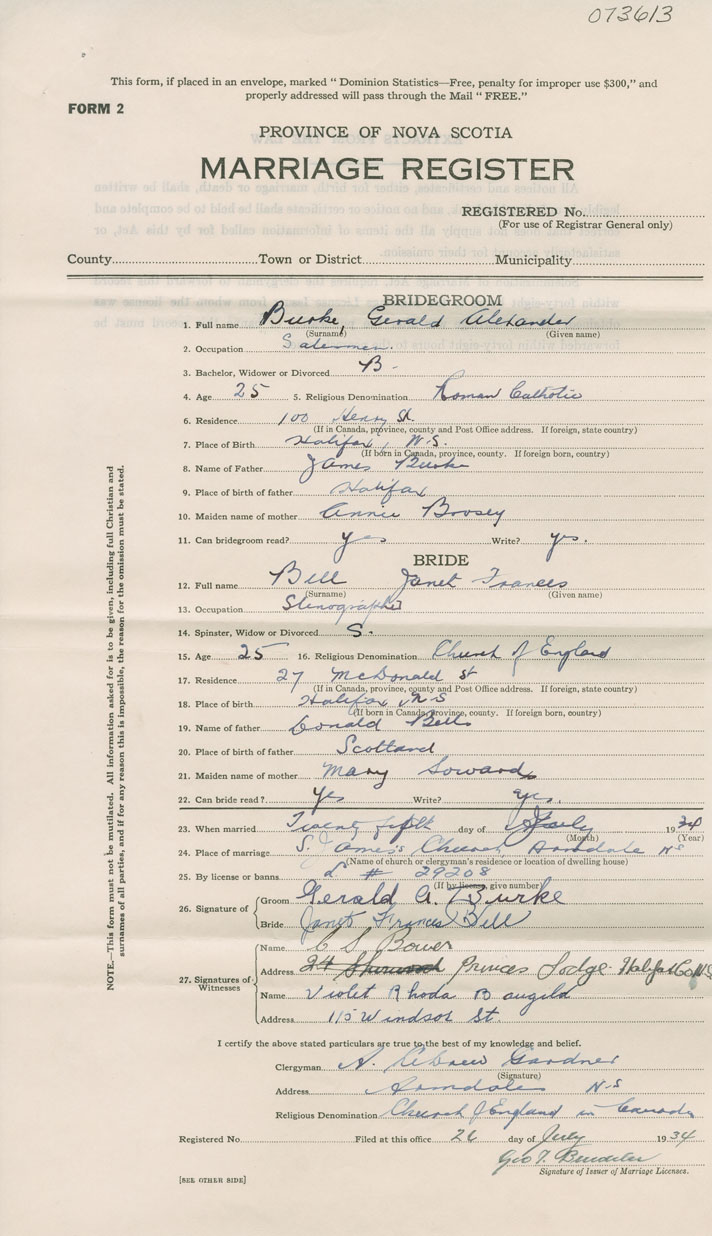 073613
This form, if placed in an envelope, marked " Dominion Statistics—Free, penalty for improper use $300," and
properly addressed will pass through the Mail " FREE."
FORM 2
PROVINCE OF NOVA SCOTIA
MARRIAGE REGISTER
REGISTERED No.
(For use of Registrar General only)
County Town or District Municipality
BRIDEGROOM
1. Full name Burke, Gerald Alexander
(Surname) (Given name)
2. Occupation Salesman.
3. Bachelor, Widower or Divorced B.
4. Age 25 5. Religious Denomination Roman Catholic
6. Residence 100 Henry St.
(If in Canada, province, county and Post Office address. If foreign, state country)
7. Place of Birth Halifax, N.S.
(If born in Canada, province, county. If foreign born, country)
8. Name of Father James Burke
9. Place of birth of father Halifax
10. Maiden name of mother Annie
11. Can bridegroom read? yes Write? yes.
BRIDE
12. Full name Bell Janet Frances
(Surname) (Given name)
13. Occupation Stenographer
14. Spinster, Widow or Divorced S.
15. Age 25 16. Religious Denomination Church of England
17. Residence 27 McDonald St
(If in Canada, province, county and Post Office address. If foreign, state country)
18. Place of birth Halifax N S
(If born in Canada, province, county. If foreign born, country)
19. Name of father Donald Bell
20. Place of birth of father Scotland
21. Maiden name of mother Mary
22. Can bride read? Yes Write? Yes.
23. When married Twenty fifth day of July 1934
(Month) (Year)
24. Place of marriage S. James's Church, Armdale N S
(Name of church or clergyman's residence or location of dwelling house)
25. By license or banns L # 29208
(If by license, give number)
26. Signature of
Groom Gerald A. Burke
Bride Janet Frances Bell
27. Signatures of Witnesses
Name C S Bower
Address 24 Sherwood Princes Lodge Halifax Co N.S
Name Violet Rhoda Baugild
Address 115 Windsor St.
I certify the above stated particulars are true to the best of my knowledge and belief.
Clergyman A. Gardner
(Signature)
Address Armdale N-S
Religious Denomination Church of England in Canada
Registered No. Filed at this office 26 day of July 1934
Geo T.
Signature of Issuer of Marriage Licenses.
[SEE OTHER SIDE]
NOTE.—This form must not be mutilated. All information asked for is to be given, including full Christian and
surnames of all parties, and if for any reason this is impossible, the reason for the omission must be stated.